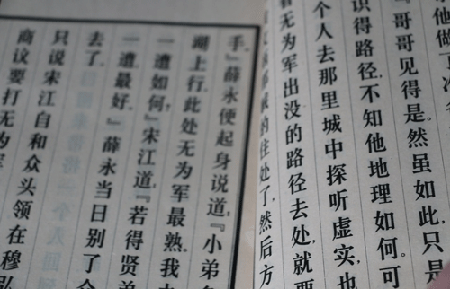 他做了
『哥哥见得是.然虽如此,只是
识得路径,不知他地理如何.可
个人去那里城中探听虚实,也
看无为军出没的路径去处,就要
的住处了,然后方
手.』薛永便起身说道,『小弟
湖上行,此处无为军最熟.我
一遭如何.』宋江道,『若得贤弟
一遭最好.』薛永当日别了
去了.
只说宋江自和众头领在穆弘
商议要打无为军